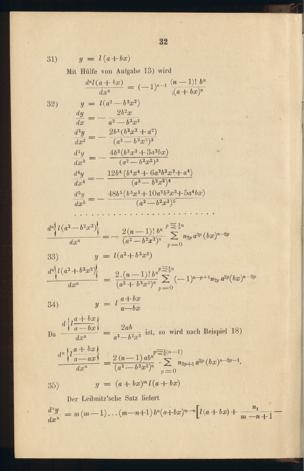 32
31) y = l (a + bx)
Mit Hülfe von Aufgabe 13) wird
dⁿl(a + bx)/dxⁿ = (−1)ⁿ⁻¹ (n−1)! bⁿ/(a + bx)ⁿ
32) y = l(a² − b²x²)
dy/dx = − 2b²x/(a² − b²x²)
d²y/dx² = − 2b²(b²x² + a²)/(a² − b²x²)²
d³y/dx³ = − 4b⁴(b²x³ + 3a²bx)/(a² − b²x²)³
d⁴y/dx⁴ = − 12b⁴(b⁴x⁴ + 6a²b²x² + a⁴)/(a² − b²x²)⁴
d⁵y/dx⁵ = − 48b⁵(b⁵x⁵ + 10a²b³x³ + 5a⁴bx)/(a² − b²x²)⁵
dⁿ{l(a² − b²x²)}/dxⁿ = − 2(n−1)! bⁿ/(a² − b²x²)ⁿ Σ n₂ₚ a²ᵖ (bx)ⁿ⁻²ᵖ
33) y = l(a² + b²x²)
dⁿ{l(a² + b²x²)}/dxⁿ = 2.(n−1)! bⁿ/(a² + b²x²)ⁿ Σ (−1)ⁿ⁻ᵖ⁺¹ n₂ₚ a²ᵖ (bx)ⁿ⁻²ᵖ
34) y = l (a + bx)/(a − bx)
Da d{l (a + bx)/(a − bx)}/dx = 2ab/(a² − b²x²) ist, so wird nach Beispiel 18)
dⁿ{l (a + bx)/(a − ax)}/dxⁿ = 2 (n−1)! abⁿ/(a² − b²x²)ⁿ . Σ n₂ₚ₊₁ a²ᵖ (bx)ⁿ⁻²ᵖ⁻¹.
35) y = (a + bx)ᵐ l(a + bx)
Der Leibnitz'sche Satz liefert
dⁿy/dxⁿ = m (m−1) ... (m−n+1) bⁿ (a+bx)ᵐ⁻ⁿ [l(a + bx) + n₁/(m−n+1) −